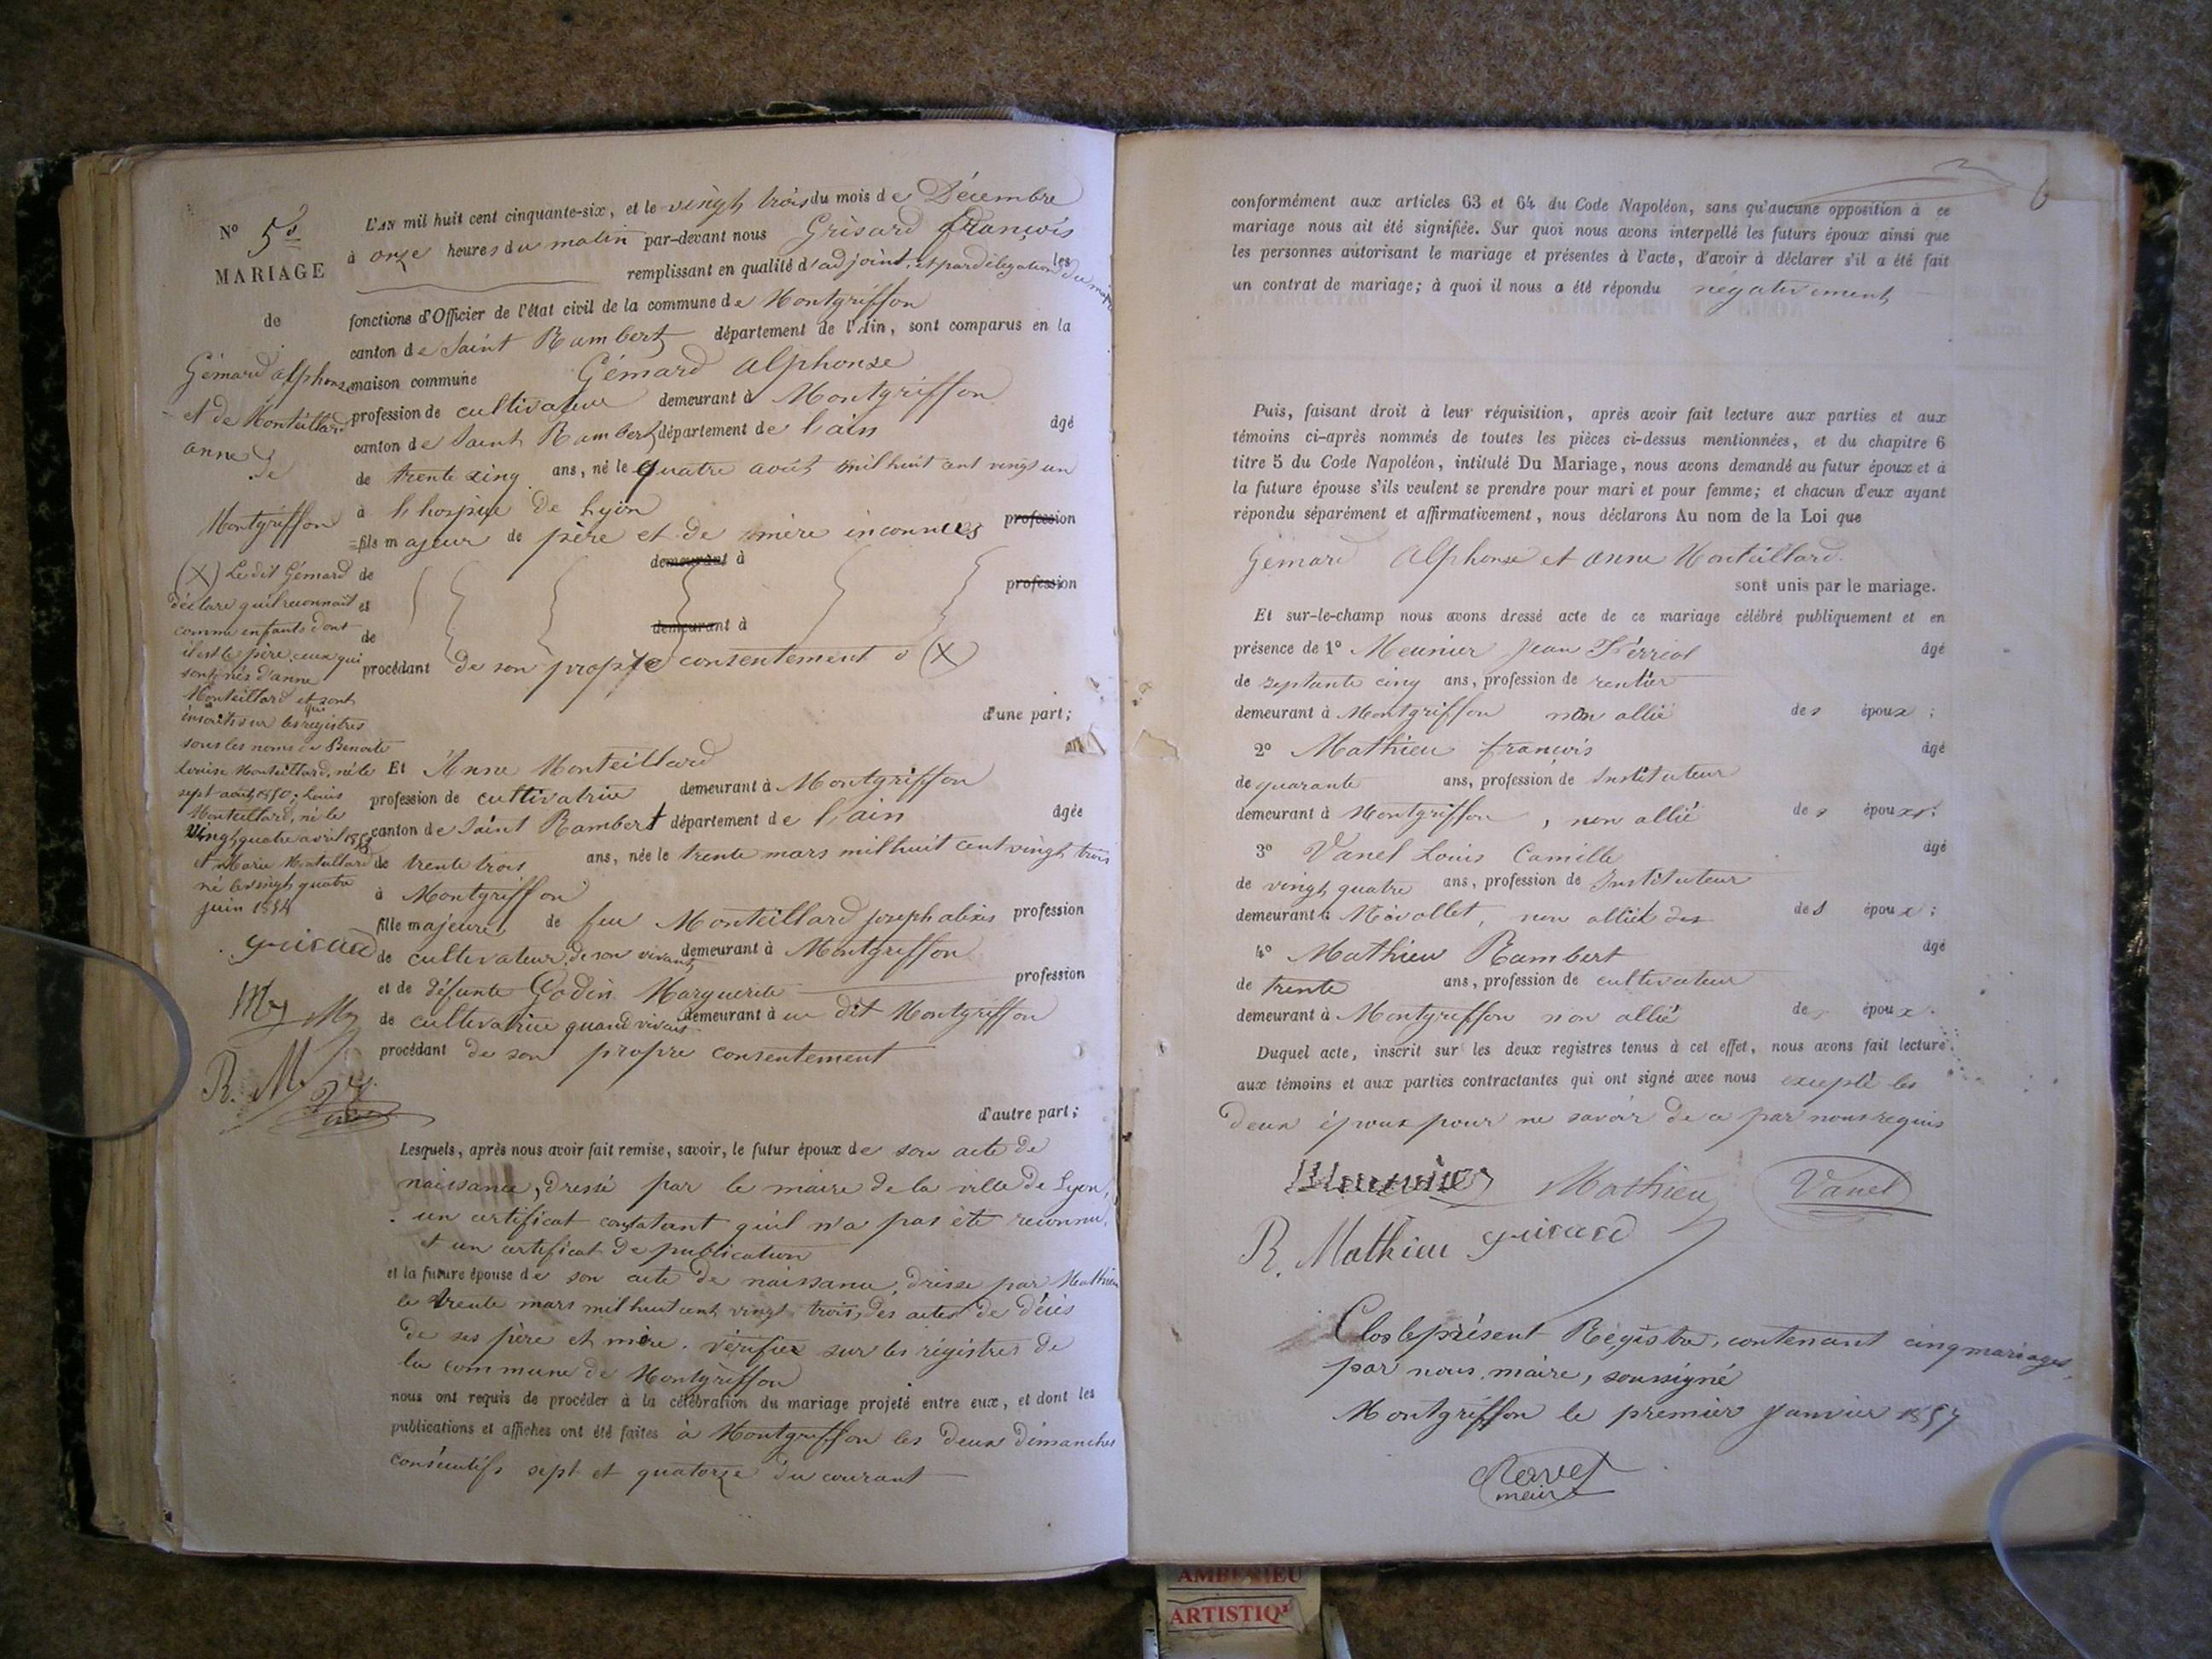 N° 5e
MARIAGE
de
Gémard alphonse
et de Monteillard
anne
de
Montgriffon
(X) Le dit Gémard
déclare qu'il reconnait
comme enfants dont
il est le père ceux qui
sont nés d'anne
Monteillard et qui sont
inscrits sur les registres
sous les noms de Benoite
Louise Monteillard, née le
sept août 1850; Louis
Monteillard, né le
vingt quatre avril
et Marie Monteillard
né le vingt quatre
juin 1854
grisard
R. M.
L'AN mil huit cent cinquante-six, et le vingt trois du mois de Décembre
à onze heures du matin par-devant nous Grisard françois
remplissant en qualité d'adjoint, et par délégation du maire les
fonctions d'Officier de l'état civil de la commune de Montgriffon
canton de Saint Rambert département de l'Ain, sont comparus en la
maison commune Gémard alphonse
profession de cultivateur demeurant à Montgriffon
canton de Saint Rambert département de l'ain âgé
de trente cinq ans, né le quatre août mil huit cent vingt un
à l'hospice de Lyon
fils majeur de père et de mère inconnues profession
de demeurant à
et profession
de demeurant à
procédant de son propre consentement (X)
d'une part;
Et Anne Monteillard
profession de cultivatrice demeurant à Montgriffon
canton de Saint Rambert département de l'ain âgée
de trente trois ans, née le trente mars mil huit cent vingt trois
à Montgriffon
fille majeure de feu Monteillard joseph alexis profession
de cultivateur de son vivant demeurant à Montgriffon
et de défunte Godin Marguerite profession
de cultivatrice quand vivait demeurant à au dit Montgriffon
procédant de son propre consentement
d'autre part;
Lesquels, après nous avoir fait remise, savoir, le futur époux de son acte de
naissance, dressé par le maire de la ville de Lyon,
un certificat constatant qu'il n'a pas été reconnu,
et un certificat de publication
et la future épouse de son acte de naissance, dressé par Mathieu
le trente mars mil huit cent vingt trois, des actes de décès
de ses père et mère. vérifiez sur les régistres de
la commune de Montgriffon
nous ont requis de procéder à la célébration du mariage projeté entre eux, et dont les
publications et affiches ont été faites à Montgriffon les deux dimanches
consécutifs sept et quatorze du courant
6
conformément aux articles 63 et 64 du Code Napoléon, sans qu'aucune opposition à ce
mariage nous ait été signifiée. Sur quoi nous avons interpellé les futurs époux ainsi que
les personnes autorisant le mariage et présentes à l'acte, d'avoir à déclarer s'il a été fait
un contrat de mariage; à quoi il nous a été répondu négativement
Puis, faisant droit à leur réquisition, après avoir fait lecture aux parties et aux
témoins ci-après nommés de toutes les pièces ci-dessus mentionnées, et du chapitre 6
titre 5 du Code Napoléon, intitulé Du Mariage, nous avons demandé au futur époux et à
la future épouse s'ils veulent se prendre pour mari et pour femme; et chacun d'eux ayant
répondu séparément et affirmativement, nous déclarons Au nom de la Loi que
Gémard Alphonse et anne Monteillard.
sont unis par le mariage.
Et sur-le-champ nous avons dressé acte de ce mariage célébré publiquement et en
présence de 1° Meunier Jean Férriol âgé
de septante cinq ans, profession de rentier
demeurant à Montgriffon non allié des époux;
2° Mathieu françois âgé
de quarante ans, profession de Instituteur
demeurant à Montgriffon, non allié des époux;
3° Vanel Louis Camille âgé
de vingt quatre ans, profession de Instituteur
demeurant à Mévollet, non allié des des époux;
4° Mathieu Rambert âgé
de trente ans, profession de cultivateur
demeurant à Montgriffon non allié des époux.
Duquel acte, inscrit sur les deux registres tenus à cet effet, nous avons fait lecture
aux témoins et aux parties contractantes qui ont signé avec nous excepté les
deux époux pour ne savoir de ce par nous requis
Meunier Mathieu Vanel
R. Mathieu grisard
Clos le présent Régistre, contenant cinq mariages,
par nous, maire, soussigné
Montgriffon le premier Janvier 1857
maire
ARTISTIQ